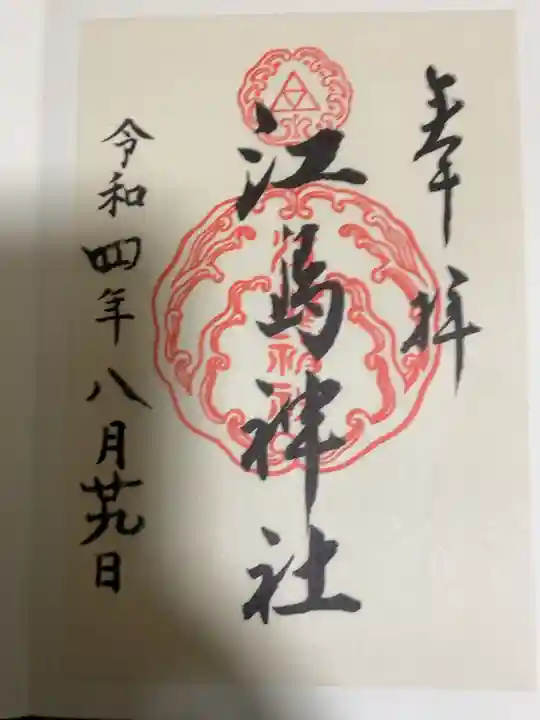 奉拝
江島神社
令和四年八月廿九日